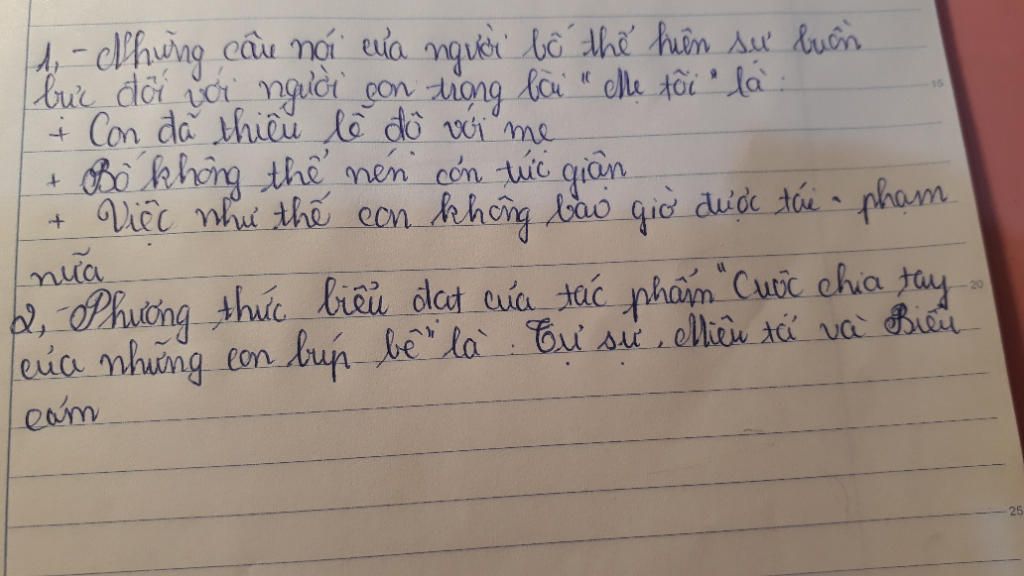 1, - Những câu nói của người bố thể hiện sự buồn
bực đối với người con trong bài "Mẹ tôi" là:
+ Con đã thiếu lễ độ với mẹ
+ Bố không thể nén cơn tức giận
+ Việc như thế con không bao giờ được tái phạm
nữa
2, - Phương thức biểu đạt của tác phẩm "Cuộc chia tay
của những con búp bê" là: Tự sự, Miêu tả và Biểu
cảm
15
20
25